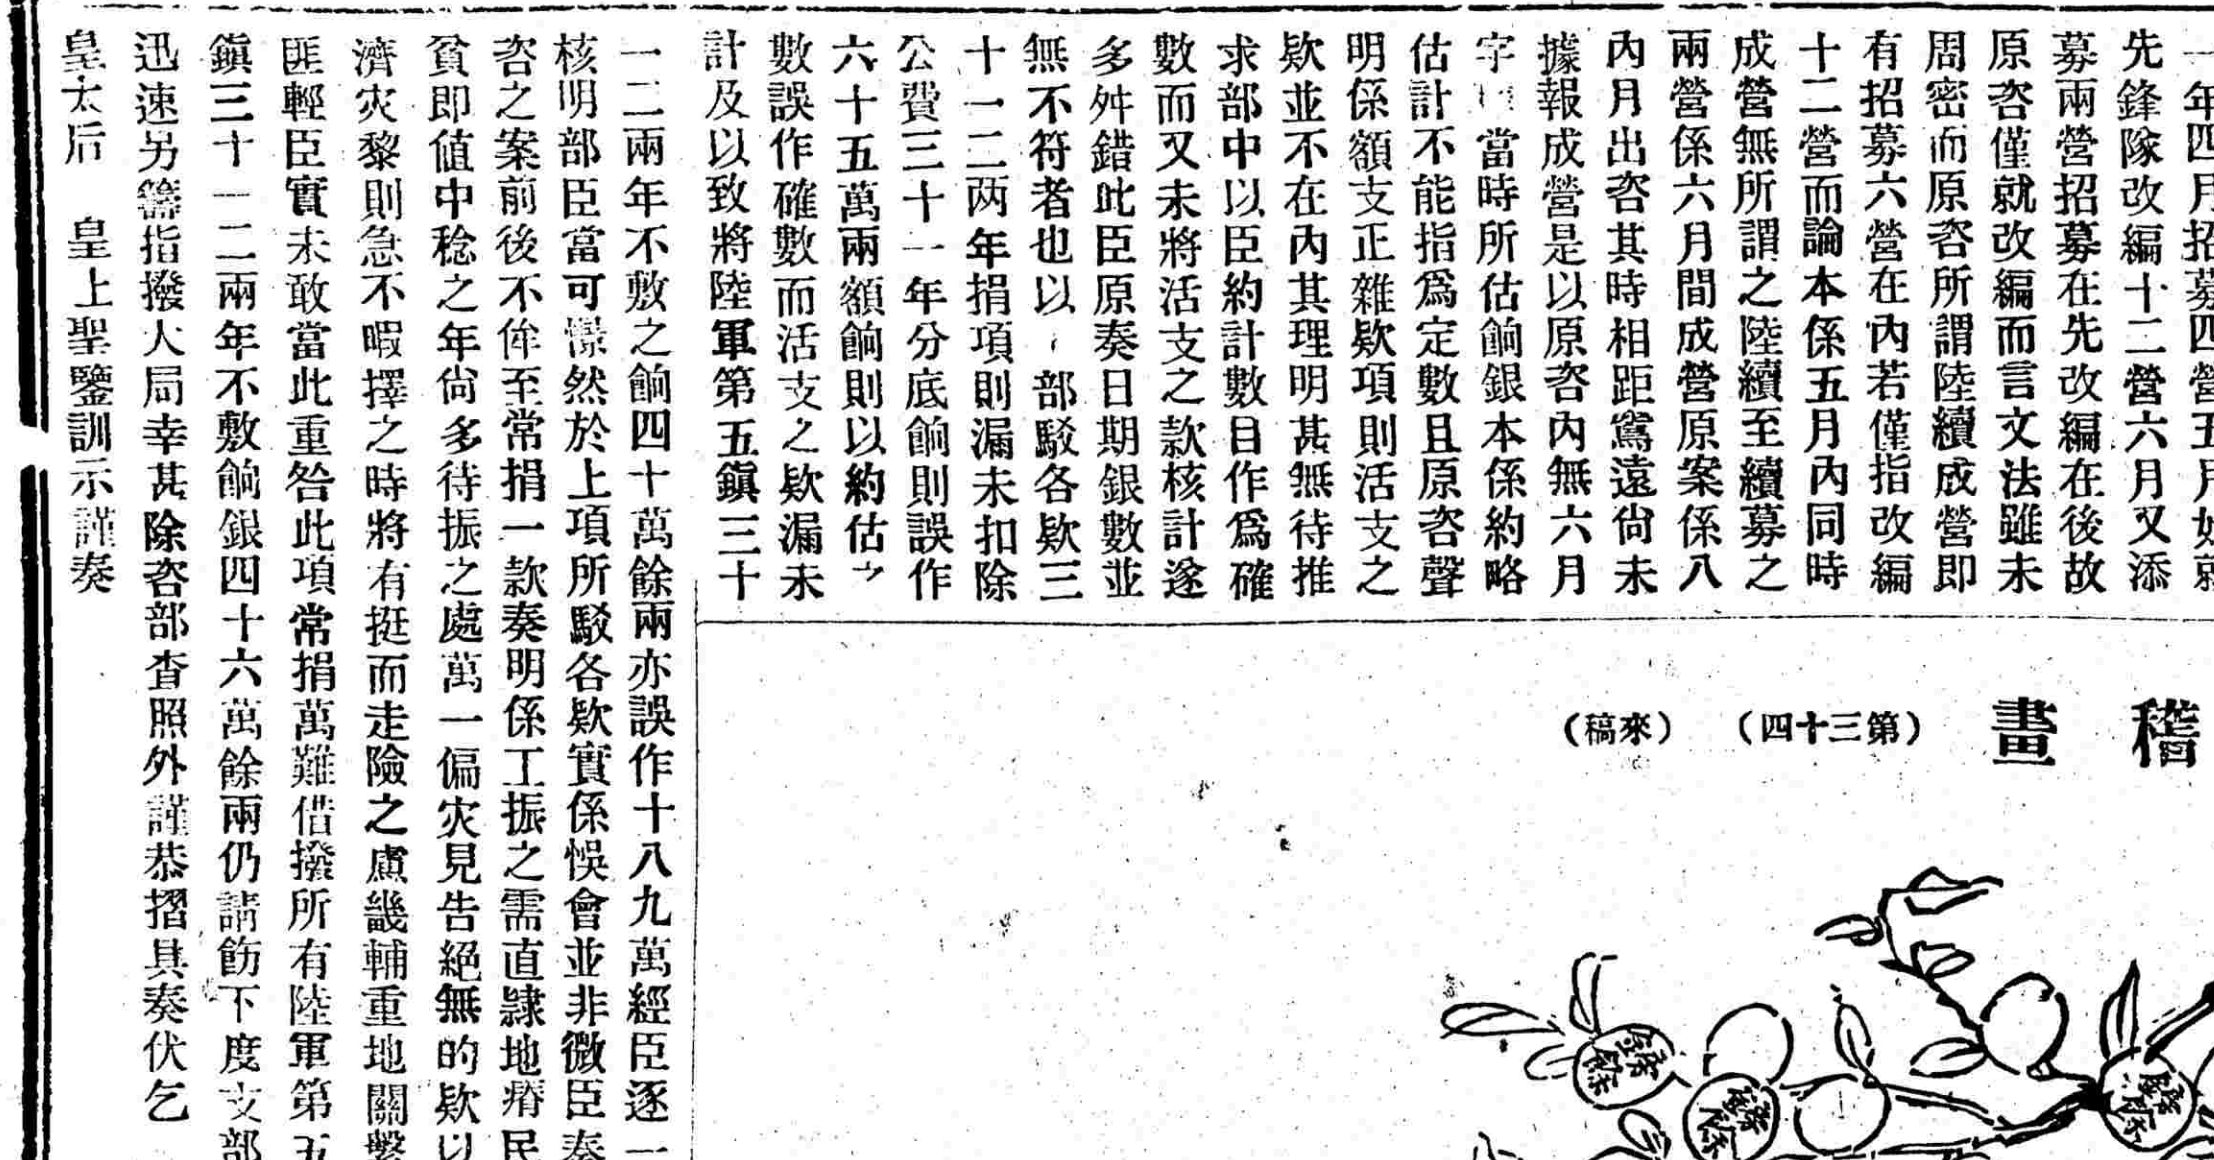 一年四月招募四營五月始就
先鋒隊改編十二營六月又添
募兩營招募在先改編在後故
原咨僅就改編而言文法雖未
周密而原咨所謂陸續成營即
有招募六營在內若僅指改編
十二營而論本係五月內同時
成營無所謂之陸續至續募之
兩營係六月間成營原案係八
內月出咨其時相距窵遠尙未
據報成營是以原咨內無六月
字 當時所估餉銀本係約略
估計不能指爲定數且原咨聲
明係額支正雜欵項則活支之
欵並不在內其理明甚無待推
求部中以臣約計數目作爲確
數而又未將活支之款核計遂
多舛錯此臣原奏日期銀數並
無不符者也以 部駁各欵三
十一二两年捐項則漏未扣除
公費三十一年分底餉則誤作
六十五萬兩額餉則以約估之
數誤作確數而活支之欵漏未
計及以致將陸軍第五鎭三十
一二兩年不敷之餉四十萬餘兩亦誤作十八九萬經臣逐一
核明部臣當可憬然於上項所駁各欵實係悞會並非微臣奏
咨之案前後不侔至常捐一款奏明係工振之需直隷地瘠民
貧即値中稔之年尙多待振之處萬一偏灾見告絕無的欵以
濟灾黎則急不暇擇之時將有挺而走險之慮畿輔重地關繫
匪輕臣實未敢當此重咎此項常捐萬難借撥所有陸軍第五
鎭三十一二兩年不敷餉銀四十六萬餘兩仍請飭下度支部
迅速另籌指撥大局幸甚除咨部查照外謹恭摺具奏伏乞
皇太后 皇上聖鑒訓示謹奏
稽畫
(第三十四)
(來稿)